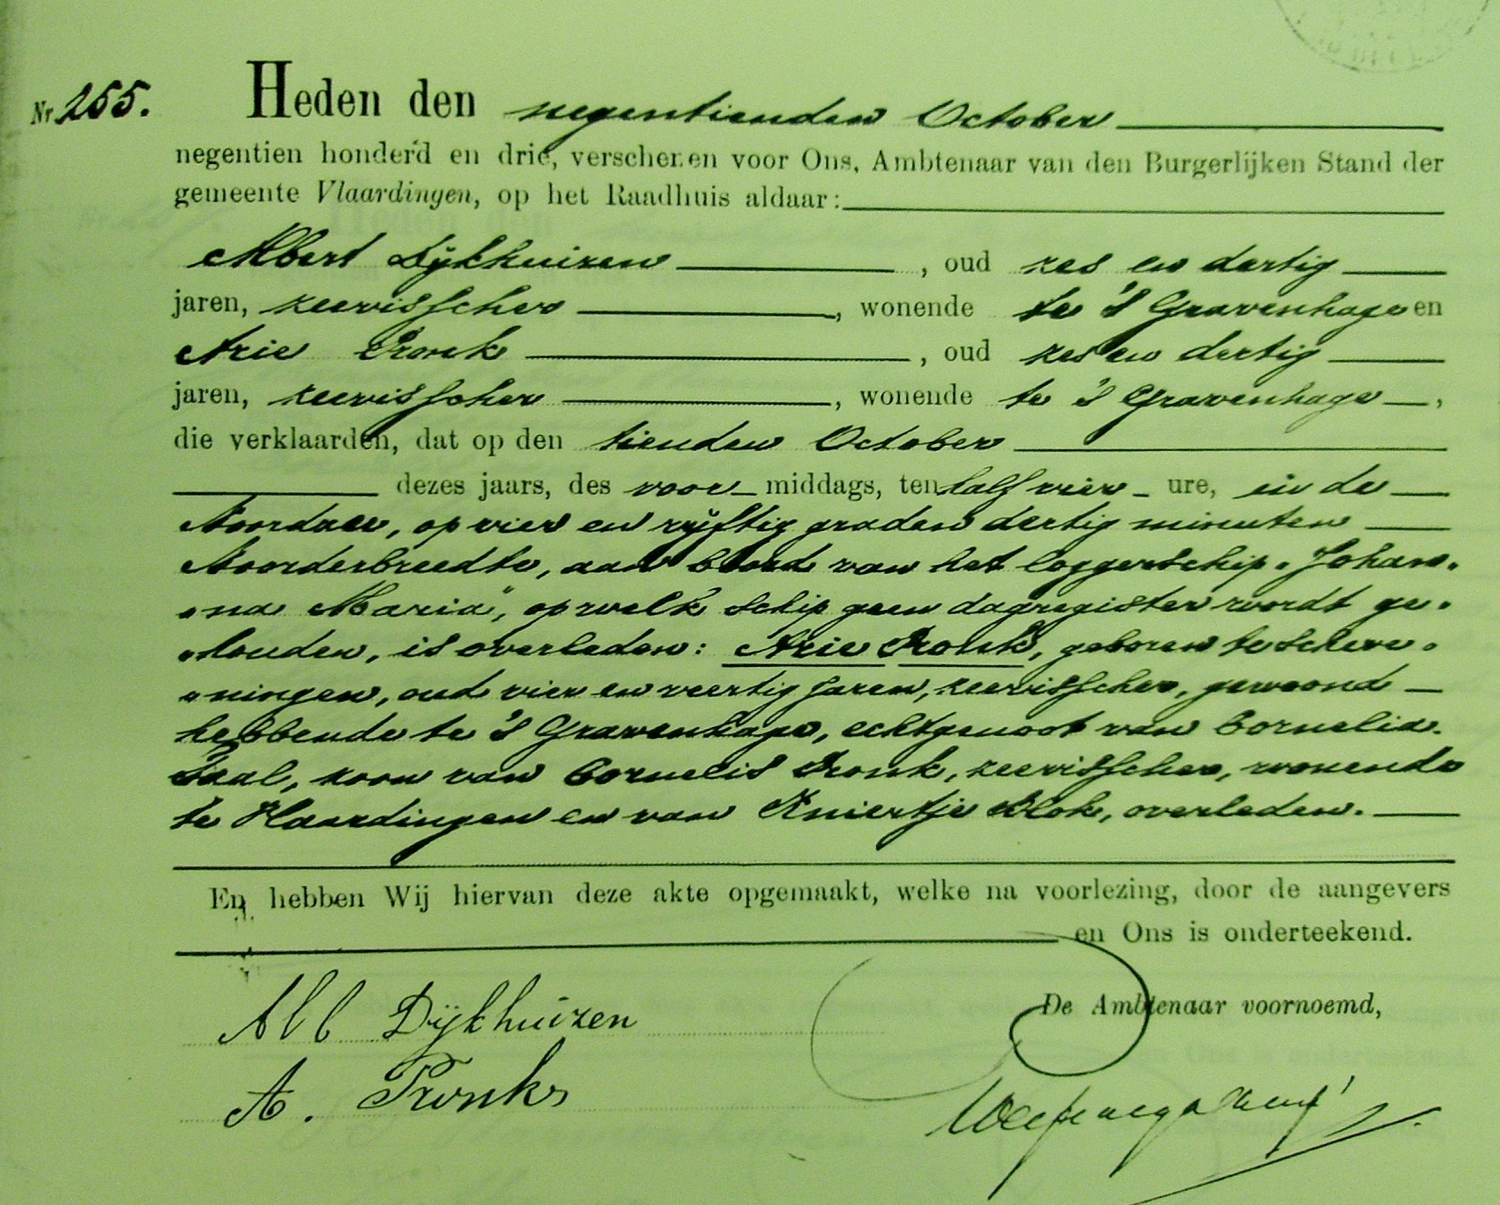 Nr 255. Heden den negentienden October
negentien honderd en drie, verschenen voor Ons, Ambtenaar van den Burgerlijken Stand der
gemeente Vlaardingen, op het Raadhuis aldaar:
Albert Dijkhuizen, oud zes en dertig
jaren, zeevisscher, wonende te 's Gravenhage en
Arie Pronk, oud zes en dertig
jaren, zeevisscher, wonende te 's Gravenhage,
die verklaarden, dat op den tienden October
dezes jaars, des voor middags, ten half vier ure, in de
Noordzee, op vier en vijftig graden dertig minuten
Noorderbreedte, aan boord van het loggerschip "Johan-
"na Maria", op welk schip geen dagregister wordt ge-
"houden, is overleden: Arie Pronk, geboren te Scheve-
"ningen, oud vier en veertig jaren, zeevisscher, gewoond
hebbende te 's Gravenhage, echtgenoot van Cornelia
Taal, zoon van Cornelis Pronk, zeevisscher, wonende
te Vlaardingen en van Kniertje Blok, overleden.
En hebben Wij hiervan deze akte opgemaakt, welke na voorlezing, door de aangevers
en Ons is onderteekend.
De Ambtenaar voornoemd,
Alb Dijkhuizen
A. Pronk